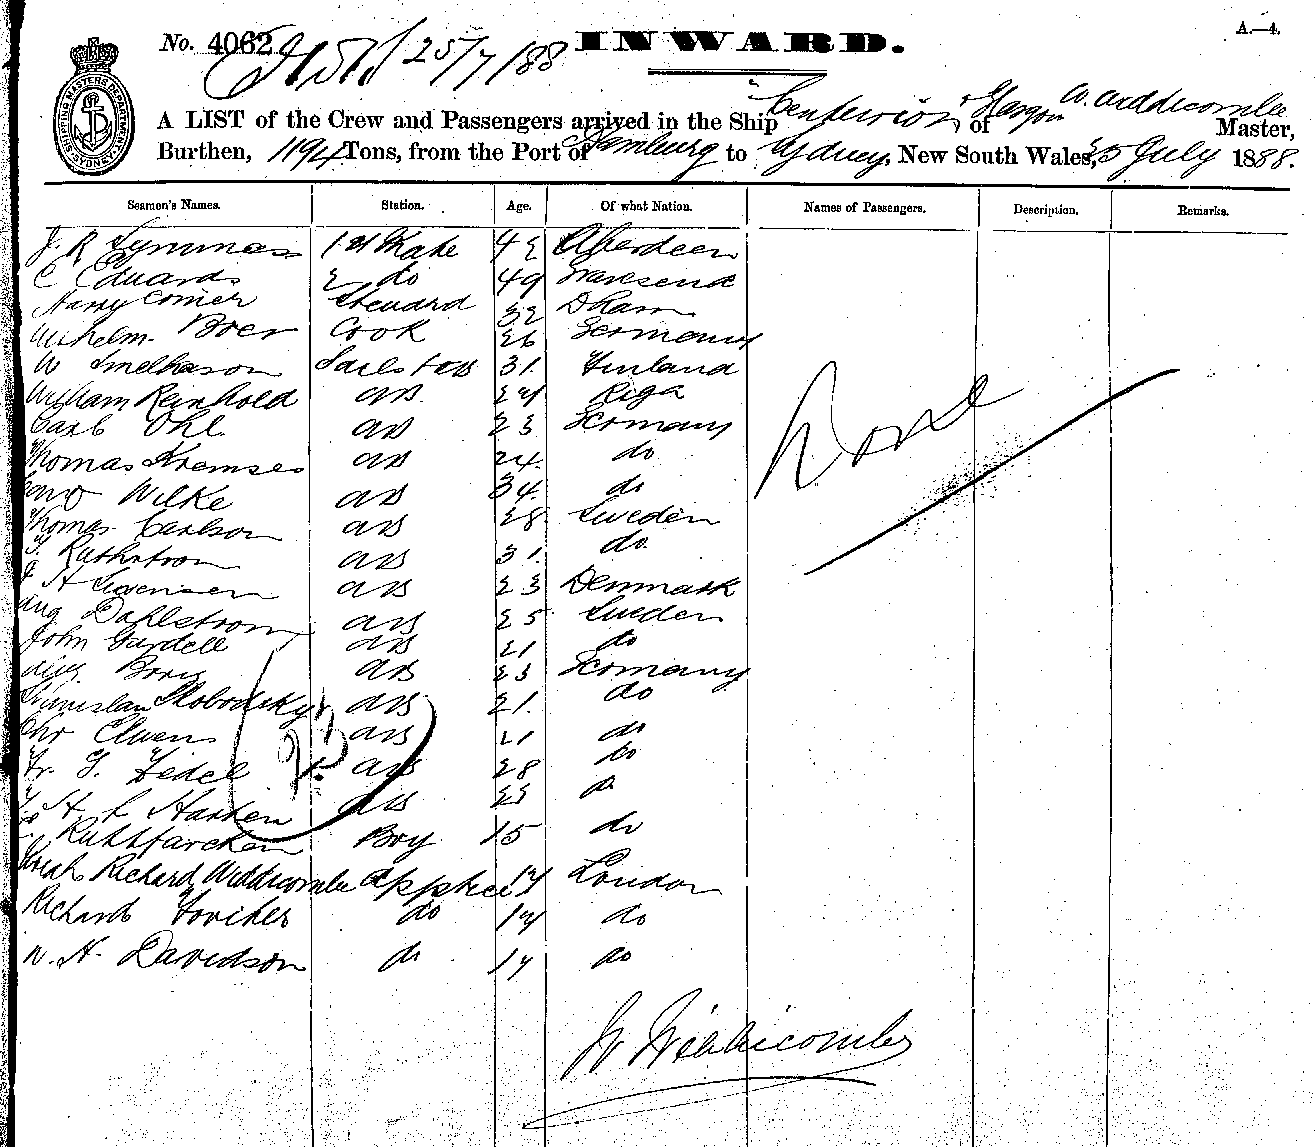 A.—4.
No. 4062 25/7/88 INWARD.
A LIST of the Crew and Passengers arrived in the Ship Centurion, of Glasgow W. Widdicombe Master,
Burthen, 1194 Tons, from the Port of Hamburg to Sydney, New South Wales, 25 July 1888.
Seamen's Names. Station. Age. Of what Nation. Names of Passengers. Description. Remarks.
J. R. Symmas 1st Mate 42 Aberdeen
C Eduards 2 do 49 Gravesend
Harry Comer Steward 32
Wilhelm Boer Cook 26 Germany
W Smelhason Sails & AB 31 Finland
William Reinhold AB 24 Riga
Carl Ohl AB 23 Germany
Thomas Kremses AB 24 do
Wilke AB 34 do
Thomas Carlson AB 28 Sweden
AB 31 do
H Sorensen AB 23 Denmark
Aug Dahlstrom AB 25 Sweden
John Gardell AB 21 do
AB 23 Germany
Stanislan Skobodsky AB 21 do
Chr Elwens AB 21 do
Fr. G. Fedel AB 28 do
H. Harken AB 23 do
Boy 15 do
Richard Widdicombe Apprtice 17 London
Richard do 17 do
W. H. Davidson do 17 do
None
23
W Widdicombe
SHIPPING MASTERS DEPARTMENT SYDNEY